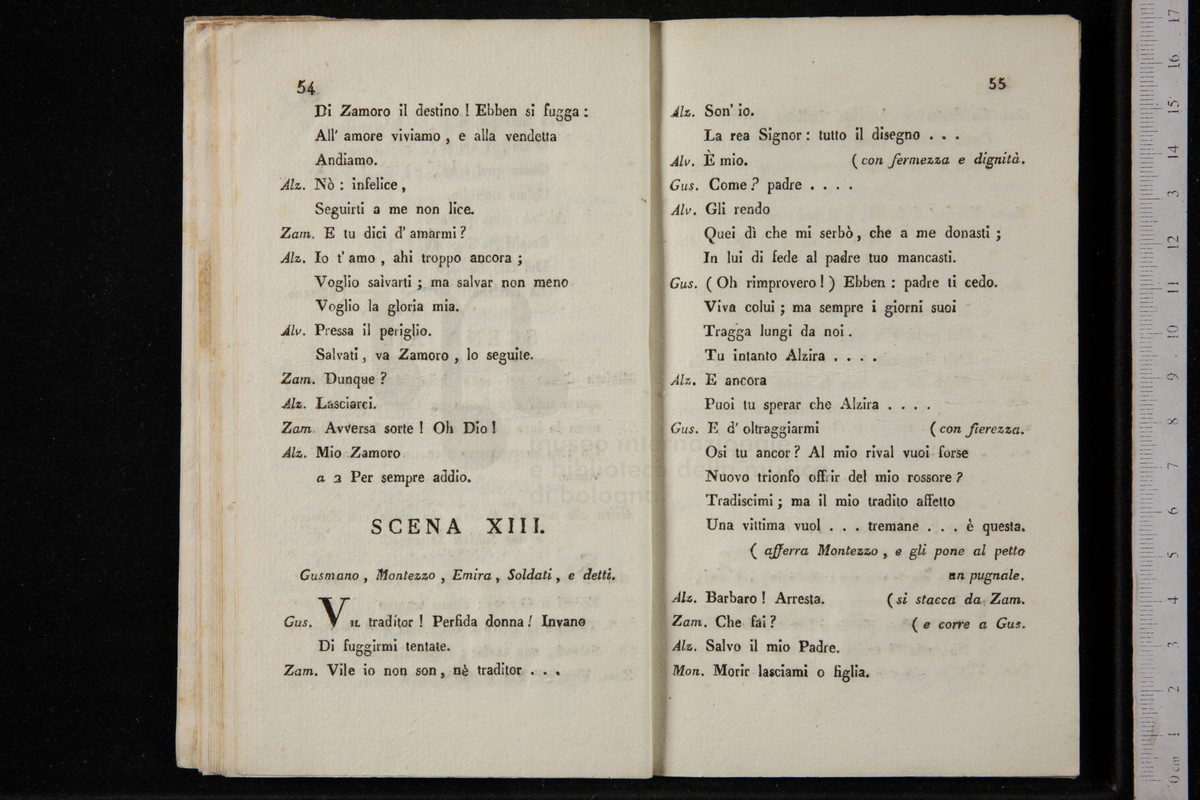 54
Di Zamoro il destino ! Ebben si fugga :
All' amore viviamo , e alla vendetta
Andiamo.
Alz. Nò : infelice ,
Seguirti a me non lice.
Zam. E tu dici d' amarmi ?
Alz. Io t' amo , ahi troppo ancora ;
Voglio salvarti ; ma salvar non meno
Voglio la gloria mia.
Alv. Pressa il periglio.
Salvati , va Zamoro , lo seguite.
Zam. Dunque ?
Alz. Lasciarci.
Zam. Avversa sorte ! Oh Dio !
Alz. Mio Zamoro
a 2 Per sempre addio.
SCENA XIII.
Gusmano , Montezzo , Emira , Soldati , e detti.
Gus. VIL traditor ! Perfida donna ! Invano
Di fuggirmi tentate.
Zam. Vile io non son , nè traditor . . .
55
Alz. Son' io.
La rea Signor : tutto il disegno . . .
Alv. È mio. ( con fermezza e dignità.
Gus. Come ? padre . . . .
Alv. Gli rendo
Quei dì che mi serbò , che a me donasti ;
In lui di fede al padre tuo mancasti.
Gus. ( Oh rimprovero ! ) Ebben : padre ti cedo.
Viva colui ; ma sempre i giorni suoi
Tragga lungi da noi .
Tu intanto Alzira . . . .
Alz. E ancora
Puoi tu sperar che Alzira . . . .
Gus. E d' oltraggiarmi ( con fierezza.
Osi tu ancor ? Al mio rival vuoi forse
Nuovo trionfo offrir del mio rossore ?
Tradiscimi ; ma il mio tradito affetto
Una vittima vuol . . . tremane . . . è questa.
( afferra Montezzo , e gli pone al petto
un pugnale.
Alz. Barbaro ! Arresta. ( si stacca da Zam.
Zam. Che fai ? ( e corre a Gus.
Alz. Salvo il mio Padre.
Mon. Morir lasciami o figlia.
museo internazionale
e biblioteca della musica
di bologna
0 cm 1 2 3 4 5 6 7 8 9 10 11 12 13 14 15 16 17